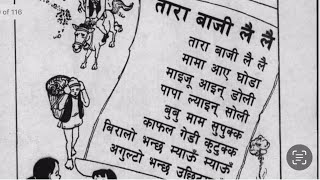 of 116
तारा बाजी लै लै
तारा बाजी लै लै
मामा आए घोडा
माइजू आइन् डोली
पापा ल्याइन् सोली
बुबु माम सुपुक्क
काफल गेडी कुटुक्क
बिरालो भन्छ म्याऊँ म्याऊँ
अगुल्टो भन्छ